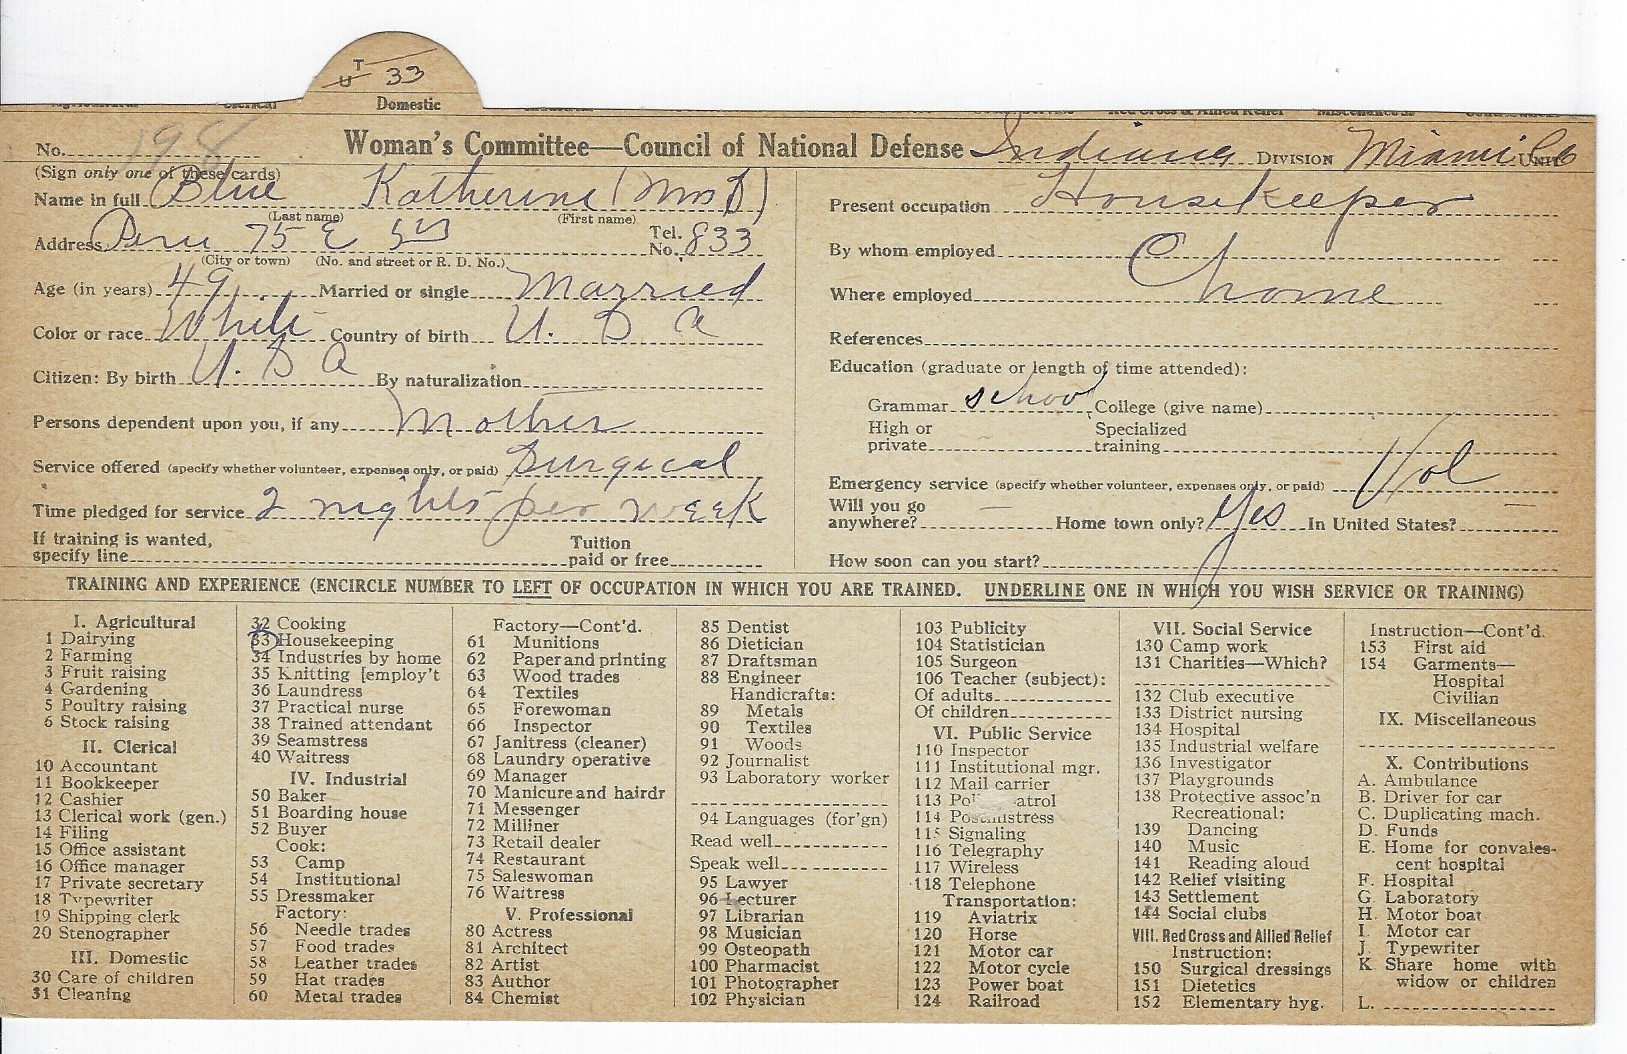 T
U 33
Domestic
No. 198 Woman's Committee—Council of National Defense Indiana DIVISION Miami Co UNIT
(Sign only one of these cards)
Name in full Blue Katherine (Mrs
(Last name) (First name)
Address Peru 75 E 5 Tel. No. 833
(City or town) (No. and street or R. D. No.)
Age (in years) 49 Married or single Married
Color or race White Country of birth U. S a
Citizen: By birth U. S a By naturalization
Persons dependent upon you, if any Mother
Service offered (specify whether volunteer, expenses only, or paid) Surgical
Time pledged for service 2 nights per week
If training is wanted, specify line Tuition paid or free
Present occupation Housekeeper
By whom employed
Where employed home
References
Education (graduate or length of time attended):
Grammar school College (give name)
High or private — Specialized training
Emergency service (specify whether volunteer, expenses only, or paid) Vol
Will you go anywhere? — Home town only? Yes In United States? —
How soon can you start?
TRAINING AND EXPERIENCE (ENCIRCLE NUMBER TO LEFT OF OCCUPATION IN WHICH YOU ARE TRAINED. UNDERLINE ONE IN WHICH YOU WISH SERVICE OR TRAINING)
I. Agricultural
1 Dairying
2 Farming
3 Fruit raising
4 Gardening
5 Poultry raising
6 Stock raising
II. Clerical
10 Accountant
11 Bookkeeper
12 Cashier
13 Clerical work (gen.)
14 Filing
15 Office assistant
16 Office manager
17 Private secretary
18 Typewriter
19 Shipping clerk
20 Stenographer
III. Domestic
30 Care of children
31 Cleaning
32 Cooking
33 Housekeeping
34 Industries by home
35 Knitting [employ't
36 Laundress
37 Practical nurse
38 Trained attendant
39 Seamstress
40 Waitress
IV. Industrial
50 Baker
51 Boarding house
52 Buyer
Cook:
53 Camp
54 Institutional
55 Dressmaker
Factory:
56 Needle trades
57 Food trades
58 Leather trades
59 Hat trades
60 Metal trades
Factory—Cont'd.
61 Munitions
62 Paper and printing
63 Wood trades
64 Textiles
65 Forewoman
66 Inspector
67 Janitress (cleaner)
68 Laundry operative
69 Manager
70 Manicure and hairdr
71 Messenger
72 Milliner
73 Retail dealer
74 Restaurant
75 Saleswoman
76 Waitress
V. Professional
80 Actress
81 Architect
82 Artist
83 Author
84 Chemist
85 Dentist
86 Dietician
87 Draftsman
88 Engineer
Handicrafts:
89 Metals
90 Textiles
91 Woods
92 Journalist
93 Laboratory worker
94 Languages (for'gn)
Read well
Speak well
95 Lawyer
96 Lecturer
97 Librarian
98 Musician
99 Osteopath
100 Pharmacist
101 Photographer
102 Physician
103 Publicity
104 Statistician
105 Surgeon
106 Teacher (subject):
Of adults
Of children
VI. Public Service
110 Inspector
111 Institutional mgr.
112 Mail carrier
113 Pol atrol
114 Postmistress
115 Signaling
116 Telegraphy
117 Wireless
118 Telephone
Transportation:
119 Aviatrix
120 Horse
121 Motor car
122 Motor cycle
123 Power boat
124 Railroad
VII. Social Service
130 Camp work
131 Charities—Which?
132 Club executive
133 District nursing
134 Hospital
135 Industrial welfare
136 Investigator
137 Playgrounds
138 Protective assoc'n
Recreational:
139 Dancing
140 Music
141 Reading aloud
142 Relief visiting
143 Settlement
144 Social clubs
VIII. Red Cross and Allied Relief
Instruction:
150 Surgical dressings
151 Dietetics
152 Elementary hyg.
Instruction—Cont'd.
153 First aid
154 Garments—
Hospital
Civilian
IX. Miscellaneous
X. Contributions
A. Ambulance
B. Driver for car
C. Duplicating mach.
D. Funds
E. Home for convales-
cent hospital
F. Hospital
G. Laboratory
H. Motor boat
I. Motor car
J. Typewriter
K. Share home with
widow or children
L.